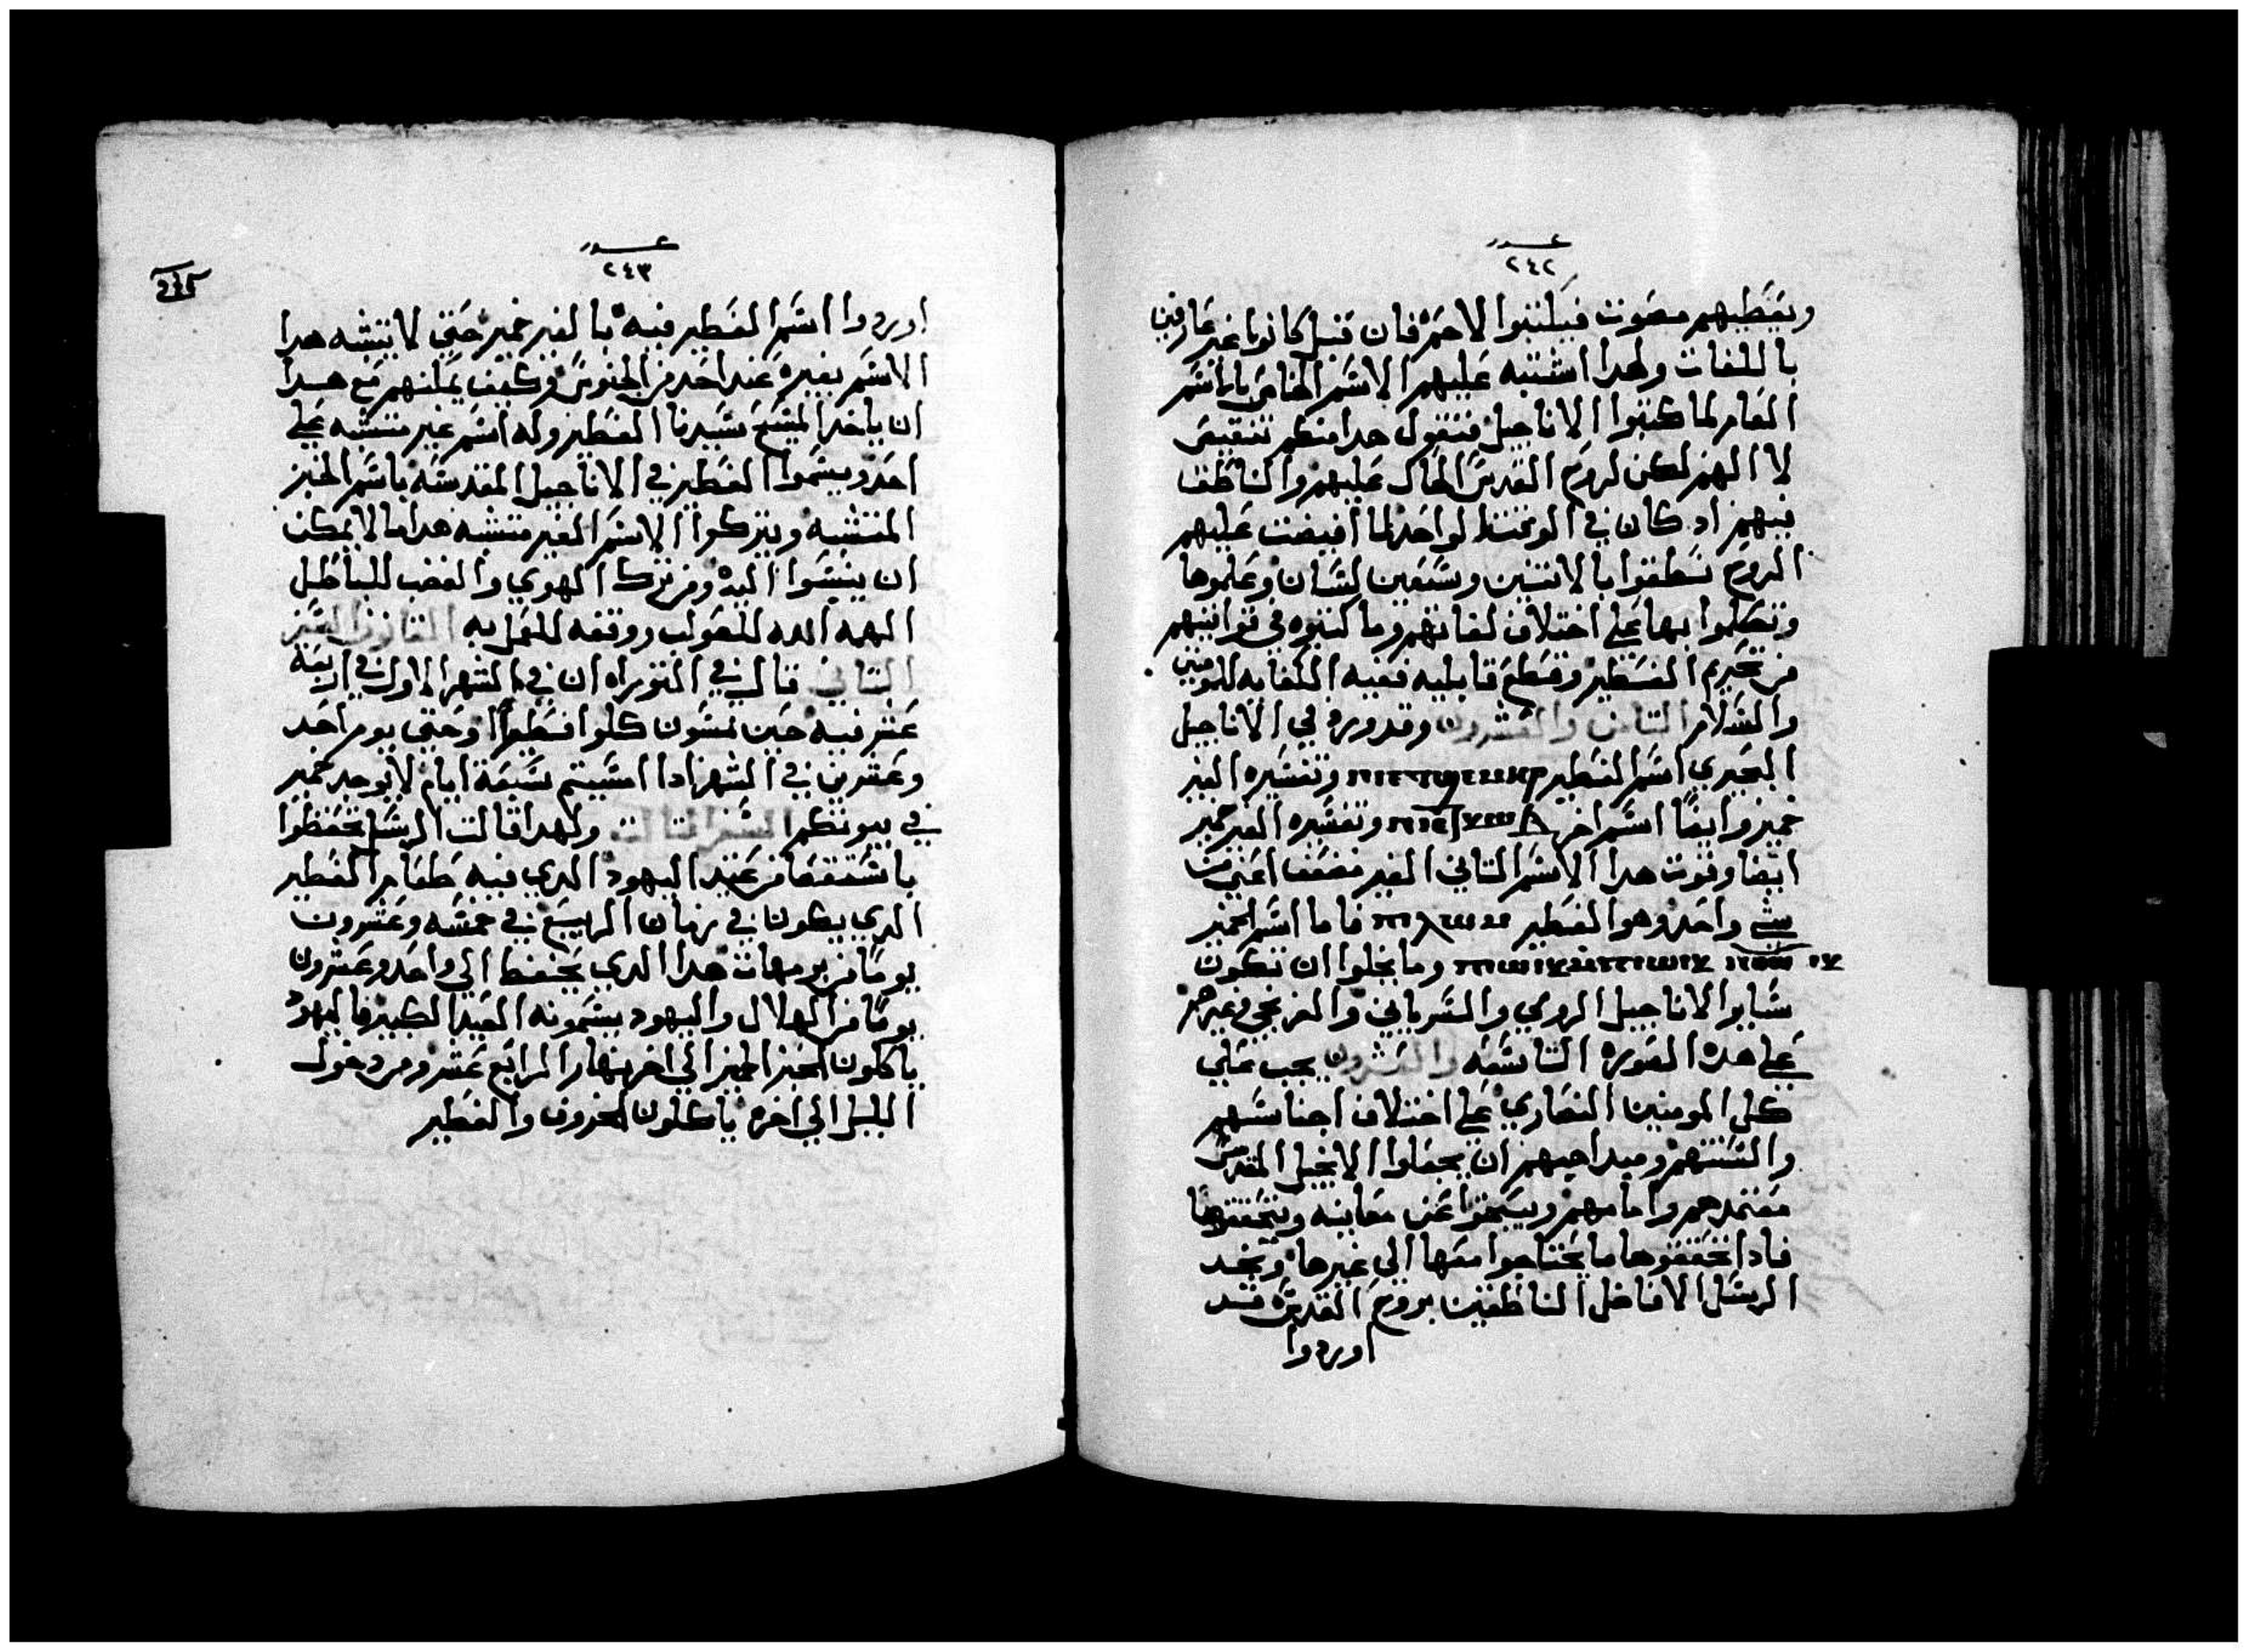 عدد
٢٤٢
ويغطيهم بصوت فيلتبوا الاحمر فان قيل كانوا غير عارفين
باللغات ولهدا اشتبه عليهم الاسم الخاص بالاسم
العام لما كتبوا الاناجيل فنقول هدا منكم تنقيص
لا الهم لكن لروح القدس الحال عليهم والناطق
فيهم اد كان في الوقت الواحد لما افيضت عليهم
الروح نطقوا بالاتنين وسبعين لسان وعلموها
وتكلموا بها علي اختلاف لغاتهم وما كتبوه في قوانينهم
من تحريم الفطير وقطع قابليه ففيه الكفايه للمومنين
والسلام التامن والعشرون وقد ورد في الاناجيل
البحيري اسم الفطير وتفسيره الغير
خمير وايضا اسم اخر وتفسيره الغير خمير
ايضا وقوت هدا الاسم التاني الغير مضعف اعني
شي واحد وهو الفطير فاما اسم الخمير
وما يخلوا ان تكون
ساير الاناجيل الرومي والسرياني والفرنجي وغيرهم
علي هده الصوره التاسعه والعشرون يجب علي
كل المومنين النصاري علي اختلاف اجناسهم
والسنتهم ومداهبهم ان يجعلوا الانجيل المقدس
معتمدهم وامامهم ويبحتوا عن معانيه ويتحققوها
فادا تحققوها ما يحتاجوا معها الي غيرها ونجد
الرسل الافاضل الناطقين بروح القدس قد
اوردوا
عدد
٢٤٣
اوردوا اسم الفطير فيه بالغير خمير حتي لا يتشبه هدا
الاسم بغيره عند احد من الجنوس وكيف يمكنهم مع هدا
ان ياخد المسيح سيدنا الفطير وله اسم غير متشبه علي
احد ويسموا الفطير في الاناجيل المقدسه باسم الخبز
المتشبه ويتركوا الاسم الغير متشبه هدا ما لا يمكن
ان ينسبوا اليه ومن ترك الهوي والغضب للباطل
الهمه الله للصواب ووفقه للعمل به القانون السفر
التاني قال في التوراه ان في الشهر الاول في اربعة
عشر فيه حين تمسون كلوا فطيرا وحتي يوم احد
وعشرين في الشهر ادا امسيتم سبعة ايام لا يوجد خمير
في بيوتكم السفر التالت ولهدا قالت الرسل تحفظوا
يا شعبنا من عيد اليهود الدي فيه طعام الفطير
الدي يكون في زمان الربيع في خمسه وعشرون
يوما من برمهات هدا الدي يحفظ الي واحد وعشرون
يوما من الهلال واليهود يسمونه العيد الكبير فاليهود
ياكلون الخبز الخمير الي اخر نهار الرابع عشر ومن دخول
الليل الي اخره ياكلون الخروف والفطير